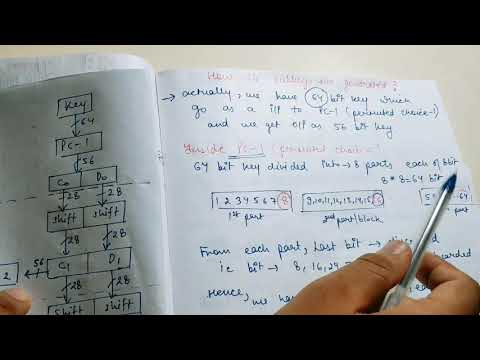 Key
64
PC-1
56
C0 D0
28 28
shift shift
28
56
2
C1 D1
28 28
shift shift
How
generated?
→ actually, we have 64 bit key which
go as a i/p to PC-1 (permuted choice-1)
and we get o/p as 56 bit key
Inside PC-1 (permuted choice-1)
64 bit key divided into → 8 parts each of 8bit
8 * 8 = 64 bit
1 2 3 4 5 6 7 8
1st part
9,10,11,12,13,14,15
2nd part/block
64
part
From each part, last bit →
i.e bit → 8, 16, 24
Hence, we